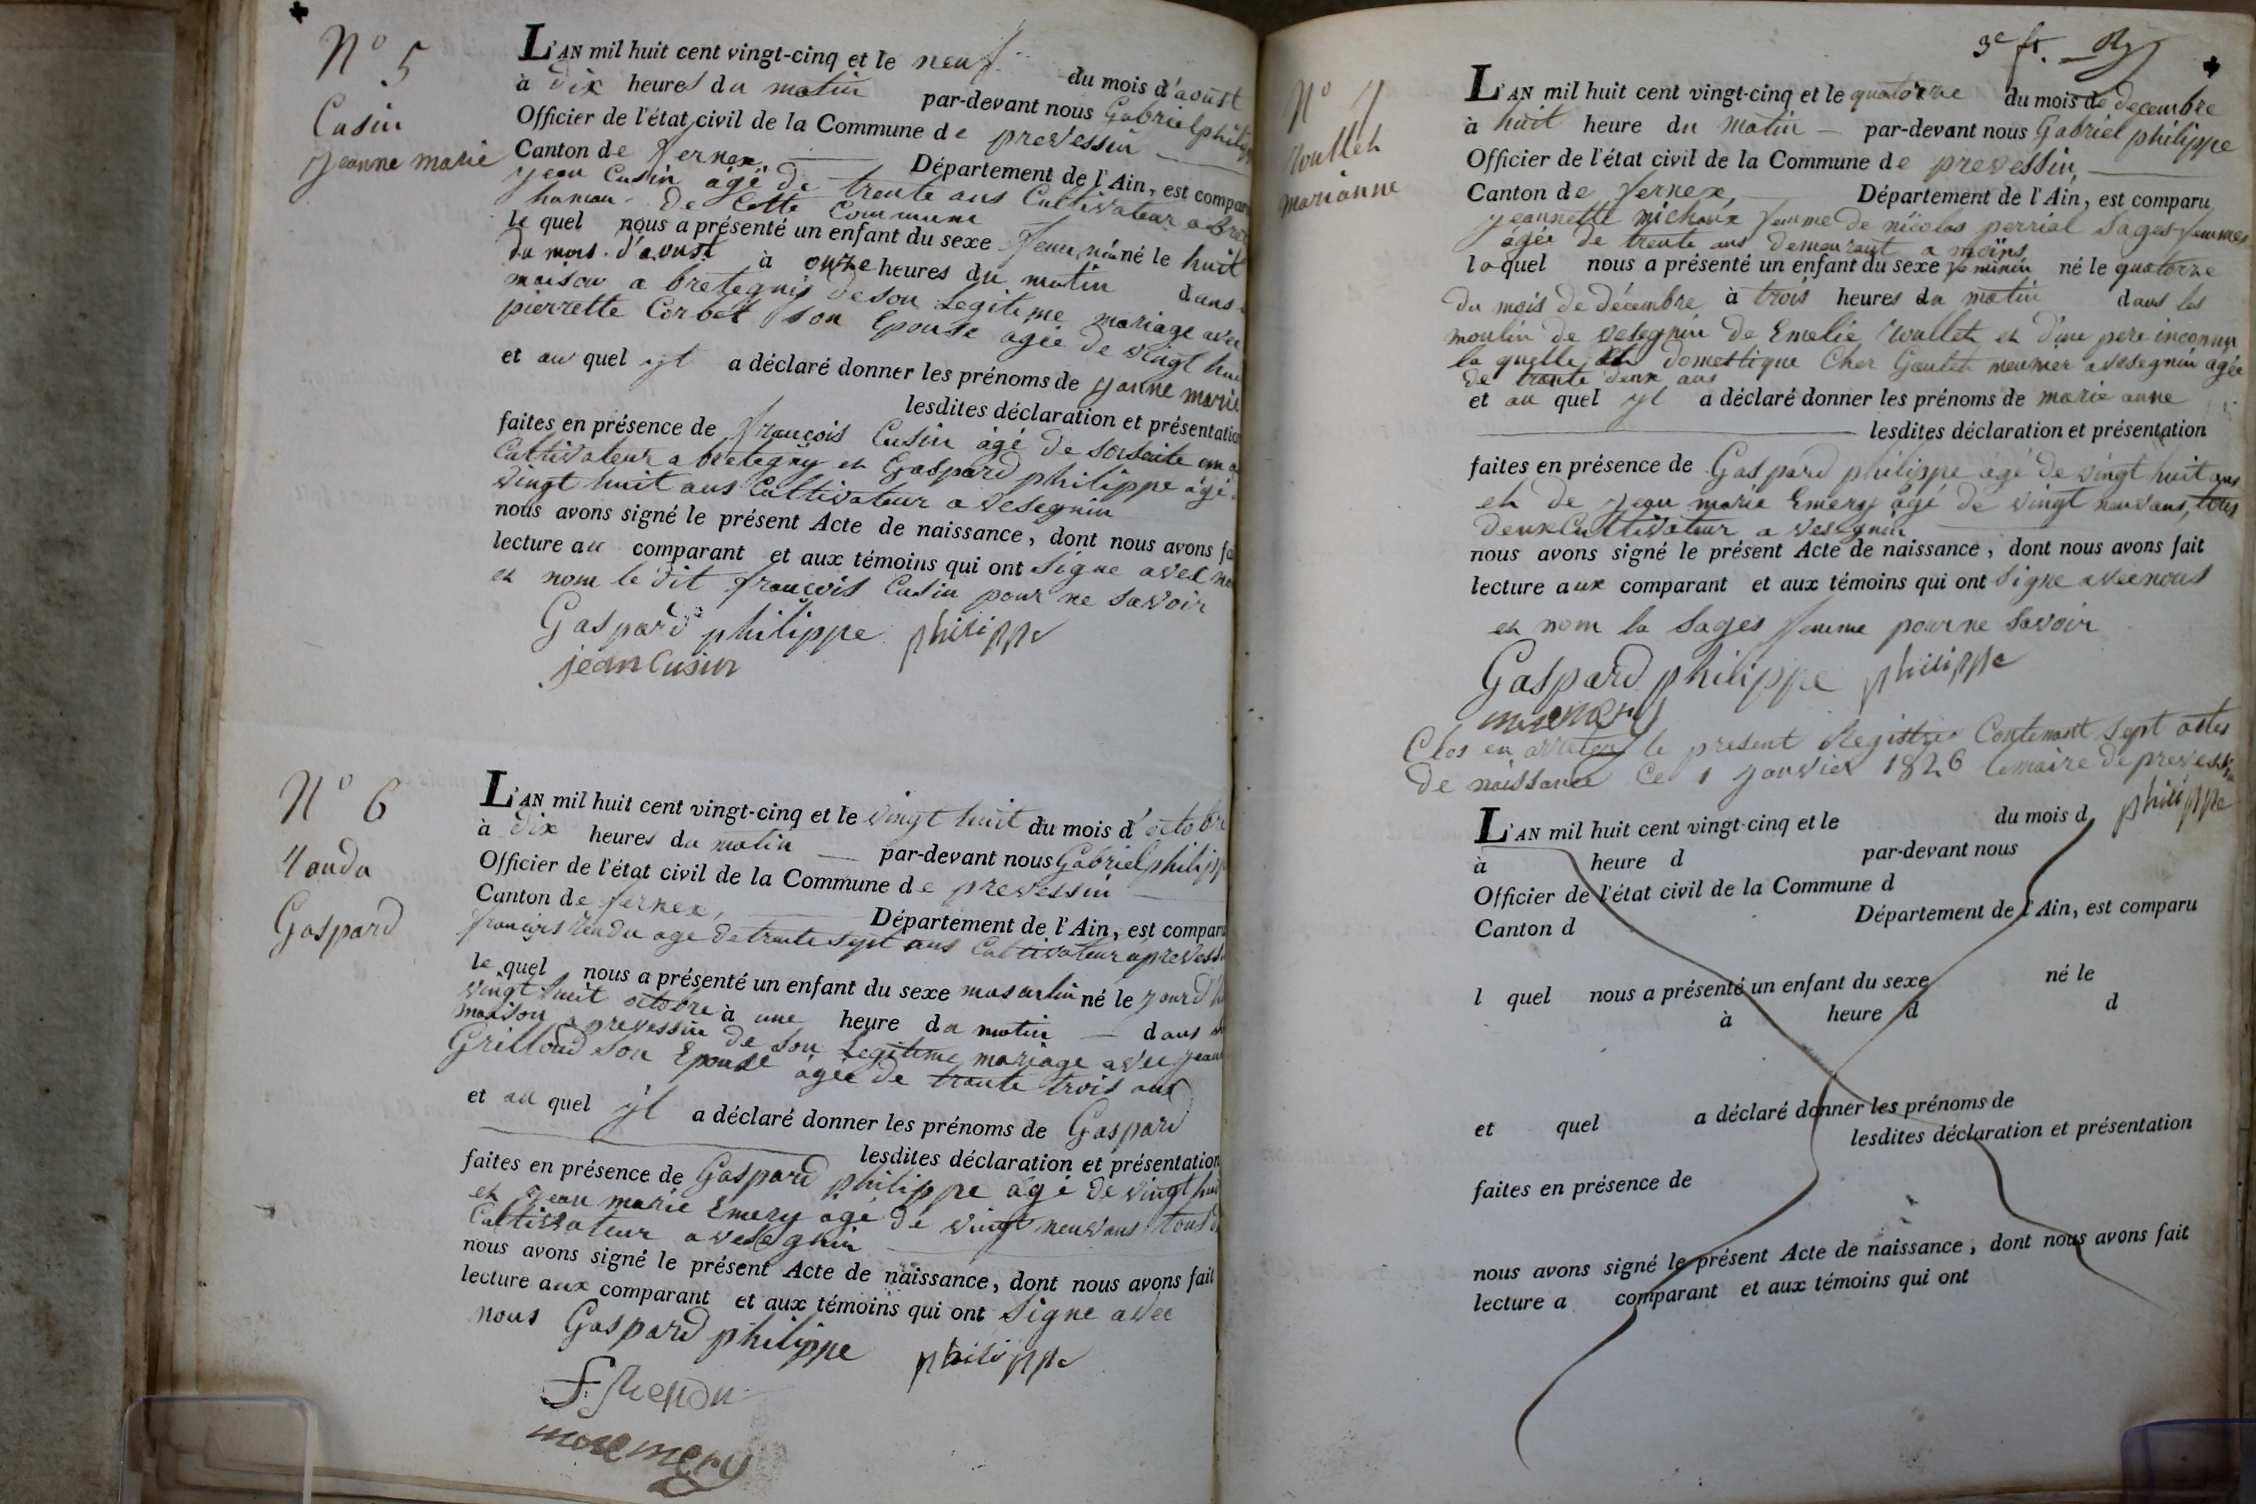 N° 5
Cusin
jeanne marie
L'AN mil huit cent vingt-cinq et le neuf du mois d'aoust
à dix heures du matin par-devant nous Gabriel philippe
Officier de l'état civil de la Commune de prevessin
Canton de fernex, Département de l'Ain, est comparu
jean Cusin âgé de trente ans Cultivateur a
hameau de Cette Commune
le quel nous a présenté un enfant du sexe né le huit
du mois d'aoust à onze heures du matin dans
maison a bretegny de son Legitime mariage avec
pierrette Corbet son Epouse agée de vingt huit
et au quel yl a déclaré donner les prénoms de jeanne marie
lesdites déclaration et présentation
faites en présence de françois Cusin âgé de soisante
Cultivateur a bretegny et Gaspard philippe âgé
vingt huit ans Cultivateur a vesegnin
nous avons signé le présent Acte de naissance, dont nous avons fait
lecture au comparant et aux témoins qui ont signe avec nous
et nom le dit françois Cusin pour ne savoir
Gaspard philippe philippe
jean Cusin
N° 6
Gaspard
L'AN mil huit cent vingt-cinq et le vingt huit du mois d'octobre
à dix heures du matin par-devant nous Gabriel philippe
Officier de l'état civil de la Commune de prevessin
Canton de fernex, Département de l'Ain, est comparu
françois Rendu age de trente sept ans Cultivateur a prevessin
le quel nous a présenté un enfant du sexe masculin né le jourd'hui
vingt huit octobre à une heure du matin dans
maison a prevessin de son Legitime mariage avec
Grilloud son Epouse âgée de trente trois ans
et au quel yl a déclaré donner les prénoms de Gaspard
lesdites déclaration et présentation
faites en présence de Gaspard philippe âgé de vingt huit
et jean marie Emery age de vingt neuv ans tous
Cultivateur a vesegnin
nous avons signé le présent Acte de naissance, dont nous avons fait
lecture aux comparant et aux témoins qui ont Signe avec
nous Gaspard philippe philippe
f Rendu
emery
3e ft.
N° 7
marianne
L'AN mil huit cent vingt-cinq et le quatorze du mois de decembre
à huit heure du matin par-devant nous Gabriel philippe
Officier de l'état civil de la Commune de prevessin,
Canton de fernex, Département de l'Ain, est comparu
jeannette michoux femme de nicolas perrial sages femmes
âgée de trente ans demeurant a moins
laquel nous a présenté un enfant du sexe feminin né le quatorze
du mois de décembre à trois heures du matin dans les
moulin de vesegnin de Emelie et d'un pere inconnu
la quelle est domestique Cher Goulet meunier a vesegnin âgée
de trante deux ans
et au quel yl a déclaré donner les prénoms de marie anne
lesdites déclaration et présentation
faites en présence de Gaspard philippe âgé de vingt huit ans
et de jean marie Emery âgé de vingt neuv ans, tous
deux Cultivateur a vesegnin
nous avons signé le présent Acte de naissance, dont nous avons fait
lecture aux comparant et aux témoins qui ont signe avec nous
et nom la Sages femme pour ne savoir
Gaspard philippe philippe
emery
Clos en arreter le present Registre Contenant sept actes
de naissance Ce 1 janvier 1826 le maire de prevessin
philippe
L'AN mil huit cent vingt-cinq et le du mois d
à heure d par-devant nous
Officier de l'état civil de la Commune d
Canton d Département de l'Ain, est comparu
l quel nous a présenté un enfant du sexe né le
à heure d d
et quel a déclaré donner les prénoms de
lesdites déclaration et présentation
faites en présence de
nous avons signé le présent Acte de naissance, dont nous avons fait
lecture a comparant et aux témoins qui ont